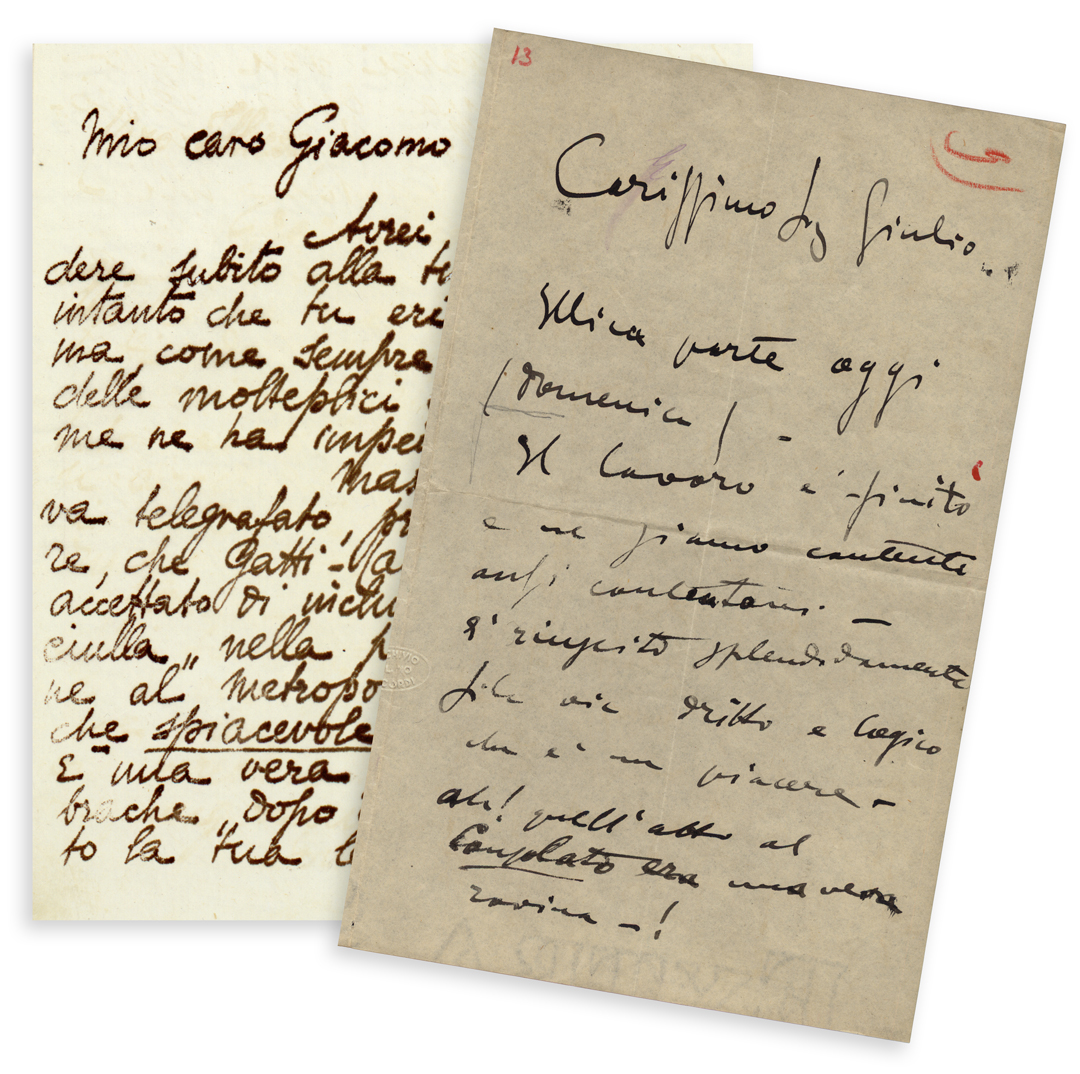 Mio caro Giacomo
Avrei
dere subito alla
intanto che tu eri
ma, come sempre
delle molteplici
me ne ha impe
Mas
va telegrafato, pr
re, che Gatti-Ca
accettato di inclu
ciulla„ nella p
ne al Metropo
che spiacevole
È una vera
brache, dopo
to la tua l
13
Carissimo Sig Giulio
Illica parte oggi
(domenica) -
Il lavoro è finito
e ne siamo contenti
anzi contentoni. —
È riuscito splendidamente
fila via dritto e logico
che è un piacere -
ah! quell'atto al
Consolato era una vera
rovina - !